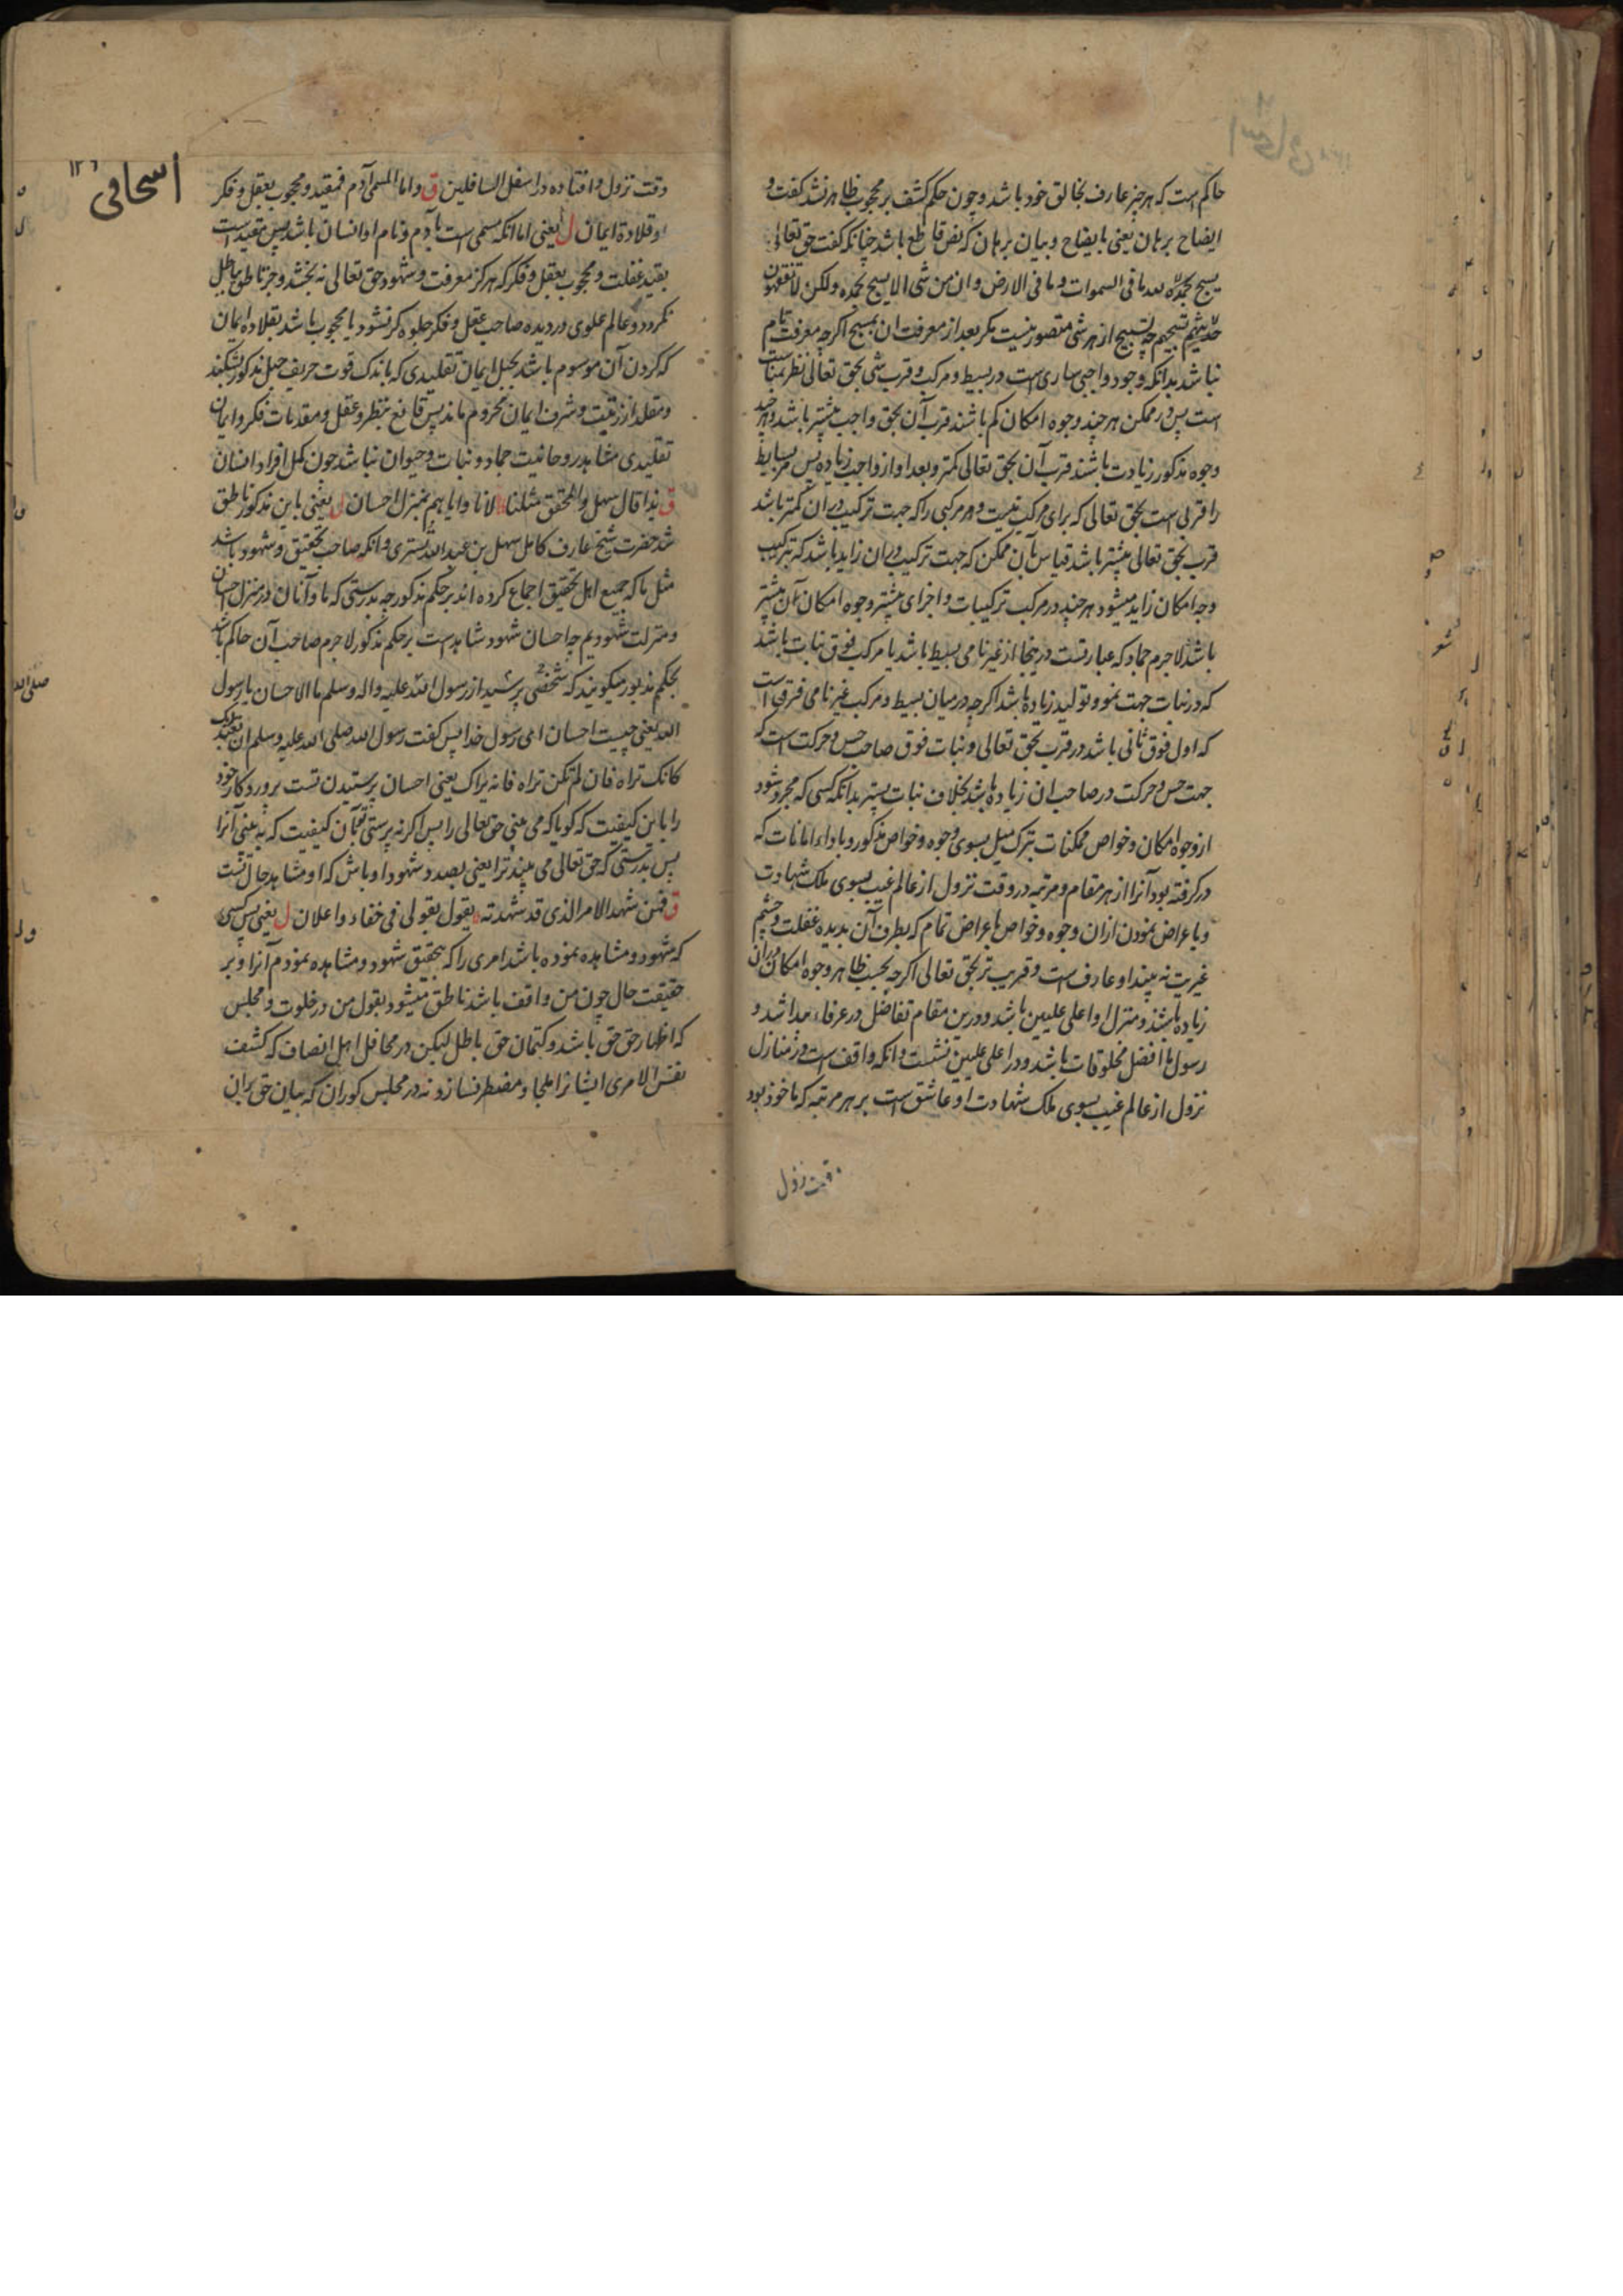 حاکم است که هر چیز عارف بخالق خود باشد و چون حکم کشف بر محجوب ظاهر نشد گفت و
ایضاح برهان یعنی بایضاح و بیان برهان که نص قاطع باشد چنانکه گفت حق تعالی
یسبح لله ما فی السموات و ما فی الارض و ان من شی الا یسبح بحمده ولکن لا تفقهون
تسبیحهم چه تسبیح از هر شی متصور نیست مکر بعد از معرفت ان بمسبح اکرچه معرفت تام
نباشد بدانکه وجود واجبی ساری است در بسیط و مرکب و قرب شی بحق تعالی نظر
است پس در ممکن هر چند وجوه امکان کم باشند قرب آن بحق واجب بیشتر باشد و هر چند
وجوه مذکور زیادت باشند قرب آن بحق تعالی کمتر و بعد او از واجب زیاده پس بسایط
را قربی است بحق تعالی که برای مرکب نیست و هر مرکبی را که جهت ترکیب در ان کمتر باشد
قرب بحق تعالی بیشتر باشد قیاس بآن ممکن که جهت ترکیب در ان زاید باشد که بترکیب
وجه امکان زاید میشود هر چند در مرکب ترکیبات و اجزای بیشتر وجوه امکان آن بیشتر
باشد لاجرم جماد که عبارتست درینجا از غیر نامی بسیط باشد یا مرکب فوق نبات باشد
که در نبات جهت نمو و تولید زیاده باشد اکرچه در میان بسیط و مرکب غیر نامی فرقی است
که اول فوق ثانی باشد در قرب بحق تعالی و نبات فوق صاحب حس و حرکت است که
جهت حس و حرکت در صاحب ان زیاده باشد بخلاف نبات بستر بدانکه کسی که مجرد شود
از وجوه امکان و خواص ممکنات بترک میل بسوی وجوه و خواص مذکور و باداء امانات که
در کرفته بود آنرا از هر مقام و مرتبه در وقت نزول از عالم غیب بسوی ملک شهادت
و باعراض نمودن ازان وجوه و خواص باعراض تمام که بطرف آن بدیده غفلت و چشم
غیریت نه بیند او عارف است و قریب تر بحق تعالی اکرچه بحسب ظاهر وجوه امکان دران
زیاده باشند و منزل او اعلی علیین باشد و درین مقام تفاضل در عرفاء پیدا شد و
رسول ما افضل مخلوقات باشد و در اعلی علیین نشست و آنکه واقف است در منازل
نزول از عالم غیب بسوی ملک شهادت او عاشق است بر هر مرتبه که ماخوذ بود
وقت نزول
اسحاقی ۱۲۶
وقت نزول و افتاده در اسفل السافلین ق و اما المسمی آدم فمقید و محجوب بعقل و فکر
او قلادة ایمان ل یعنی اما آنکه مسمی است بآدم و نام او انسان باشد پس مقید است
بقید غفلت و محجوب بعقل و فکر که هرکز معرفت و شهود حق تعالی نه بخشد و جز ناطق بباطل
نکردد و عالم علوی در دیده صاحب عقل و فکر جلوه کر نشود یا محجوب باشد بقلاده ایمان
که کردن آن موسوم باشد بحبل ایمان تقلیدی که باندک قوت حریف حبل مذکور بشکند
و مقلد از رتبت و شرف ایمان محروم ماند پس قانع بنظر و عقل و مقدمات فکر و ایمان
تقلیدی مشاهد روحانیت جماد و نبات و حیوان نباشد چون کمل افراد انسان
ق بذا قال سهل والمحقق مثلنا لانا و ایاهم بمنزل احسان ل یعنی باین مذکور ناطق
شد حضرت شیخ عارف کامل سهل بن عبدالله تستری و آنکه صاحب تحقیق و شهود باشد
مثل ما که جمیع اهل تحقیق اجماع کرده اند بر حکم مذکور چه بدرستی که ما و آنان در منزل احسان
و منزلت شهودیم چه احسان شهود شاهد است بر حکم مذکور لاجرم صاحب آن حاکم باشد
بحکم مذبور میکویند که شخصی پرسید از رسول الله علیه واله وسلم ما الاحسان یا رسول
الله یعنی چیست احسان ای رسول خدا پس کفت رسول الله صلی الله علیه وسلم ان تعبد ربک
کانک تراه فان لم تکن تراه فانه یراک یعنی احسان پرستیدن تست پروردکار خود
را باین کیفیت که کویا که می بینی حق تعالی را پس اکر نه پرستی بآن کیفیت که نه بینی آنرا
پس بدرستی که حق تعالی می بیند ترا یعنی بصدد شهود او باش که او مشاهد حال تست
ق فمن شهد الامر الذی قد شهدته یقول بقولی فی خفاء و اعلان ل یعنی پس کسی
که شهود و مشاهده نموده باشد امری را که بتحقیق شهود و مشاهده نمودم آنرا و بر
حقیقت حال چون من واقف باشد ناطق میشود بقول من در خلوت و مجلس
که اظهار حق حق باشد و کتمان حق باطل لیکن در محافل اهل انصاف که کشف
نفس الامری ایشانرا ملجا و مضطر نسازد نه در مجلس کوران که بیان حق بران
صلی الله